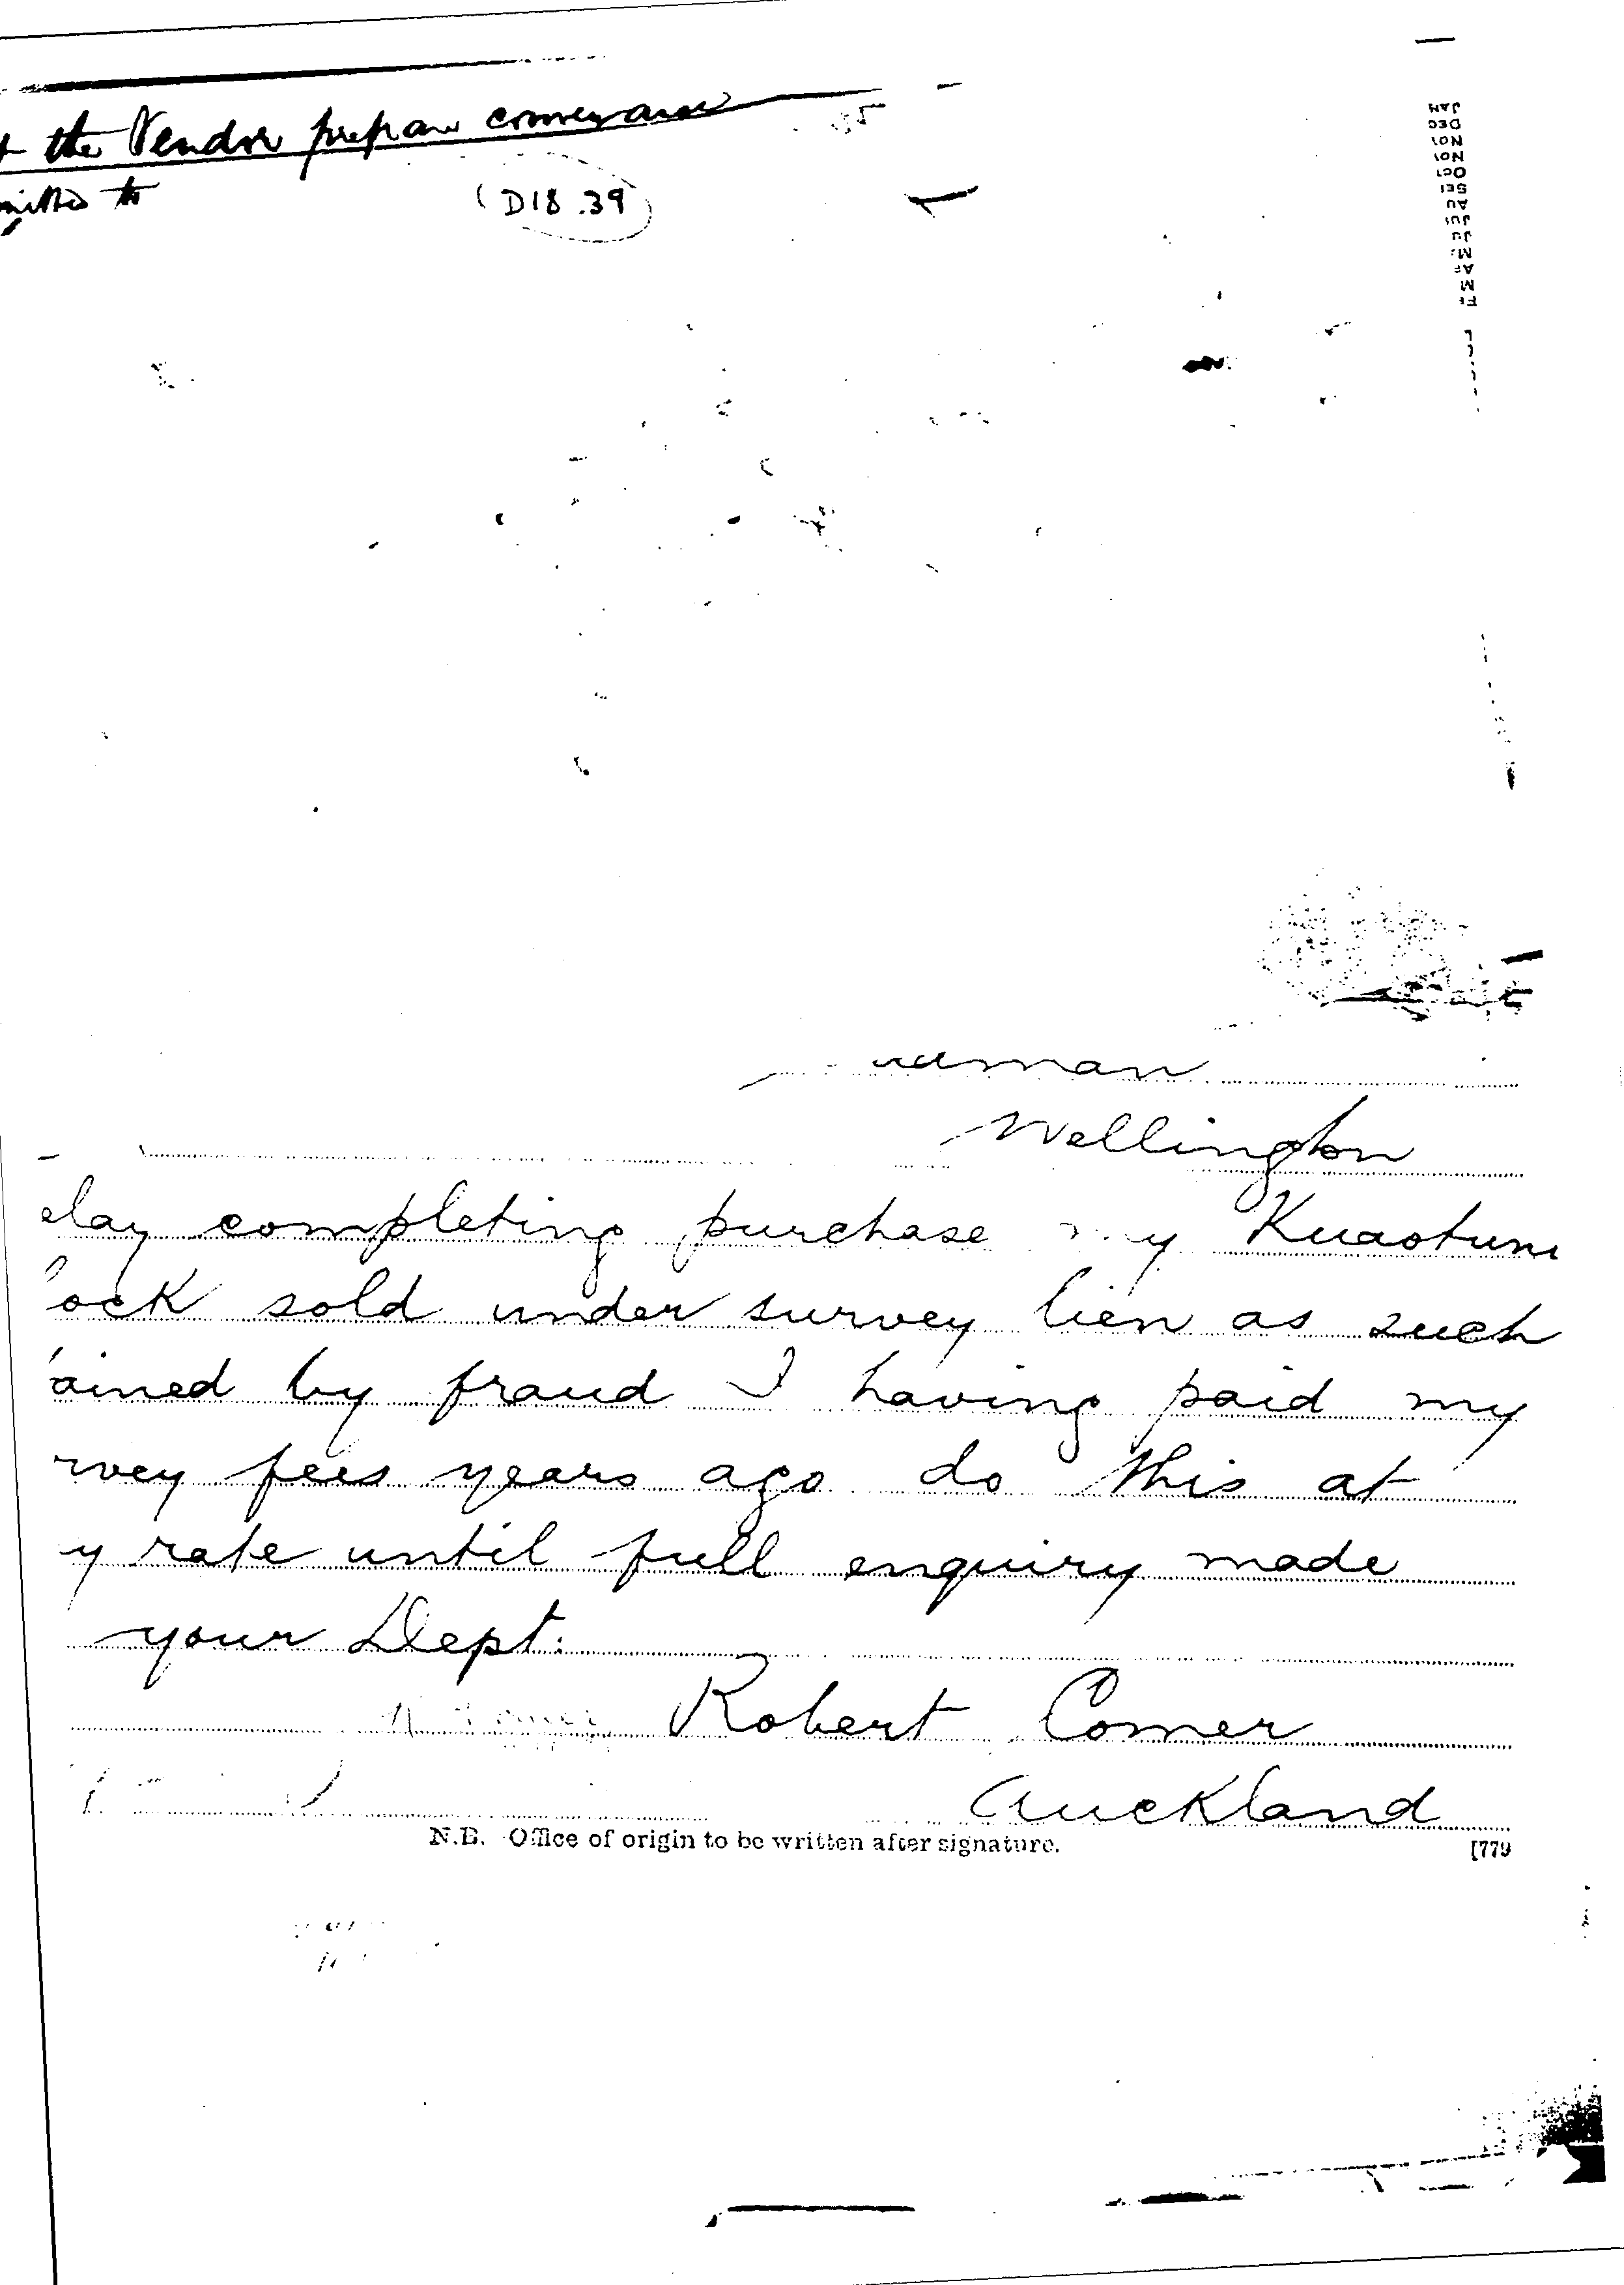 the Vendor prepare conveyance
(D18.39)
JAN
DEC
Wellington
elay completing purchase my Kuaotunu
ock sold under survey lien as such
ained by fraud I having paid my
rvey fees years ago do this at
y rate until full enquiry made
your Dept:
Robert Comer
Auckland
N.B. Office of origin to be written after signature.
[779